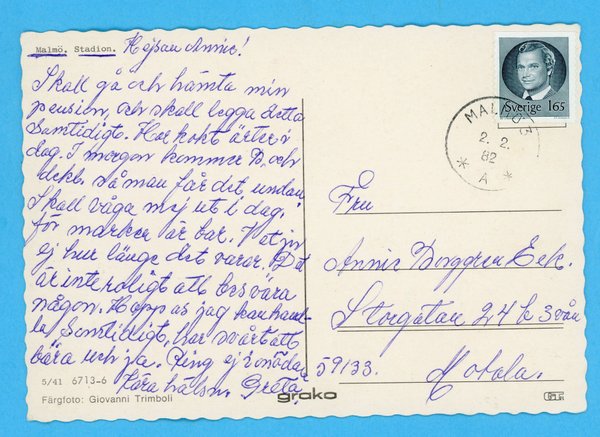 Malmö. Stadion. Hejsan Annie!
Skall gå och hämta min
pension, och skall lägga detta
samtidigt. Har kokt ärter i
dag. I morgon kommer D. och
det. så man får det undan
Skall våga mej ut i dag.
för marken är bar. Vet ju
ej hur länge det varar. Det
är inte roligt att besvära
någon. Hoppas jag kan hand-
la samtidigt, har svårt att
bära och ja. Ring ej i onödan
Kära hälsn. Greta.
5/41 6713-6
Färgfoto: Giovanni Trimboli
grako
Sverige 165
MALMÖ
2. 2.
82
* A *
Fru
Annie Borggren Eek.
Storgatan 24 b 3 vån
59133. Motala.